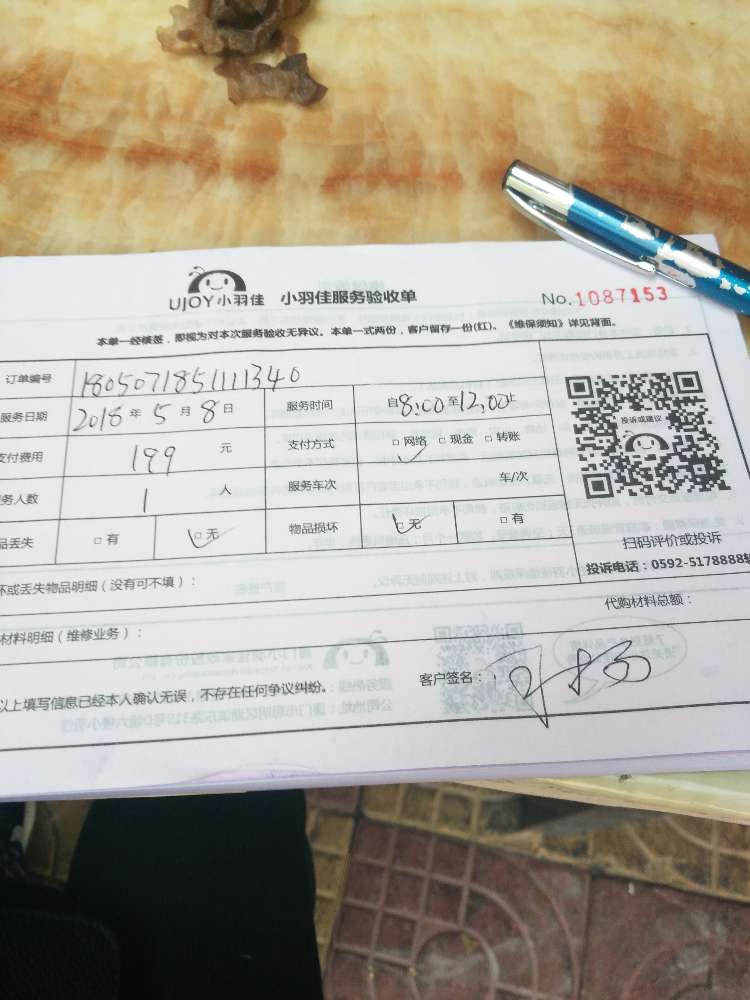 UJOY小羽佳 小羽佳服务验收单 No.1087153
本单一经核签，即视为对本次服务验收无异议。本单一式两份，客户留存一份(红)。《维保须知》详见背面。
订单编号 1805071851111340
服务日期 2018年5月8日 服务时间 自8:00至12:00止
支付费用 199 元 支付方式 □网络 □现金 □转账
务人数 1 人 服务车次 车/次
品丢失 □有 □无 物品损坏 □无 □有
投诉或建议
扫码评价或投诉
投诉电话：0592-5178888转
坏或丢失物品明细（没有可不填）：
代购材料总额：
材料明细（维修业务）：
以上填写信息已经本人确认无误，不存在任何争议纠纷。 客户签名：